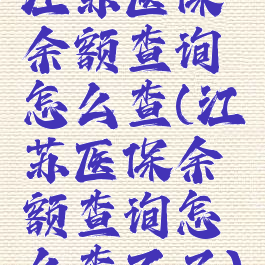 江苏医保
余额查询
怎么查(江
苏医保余
额查询怎
么查不了)